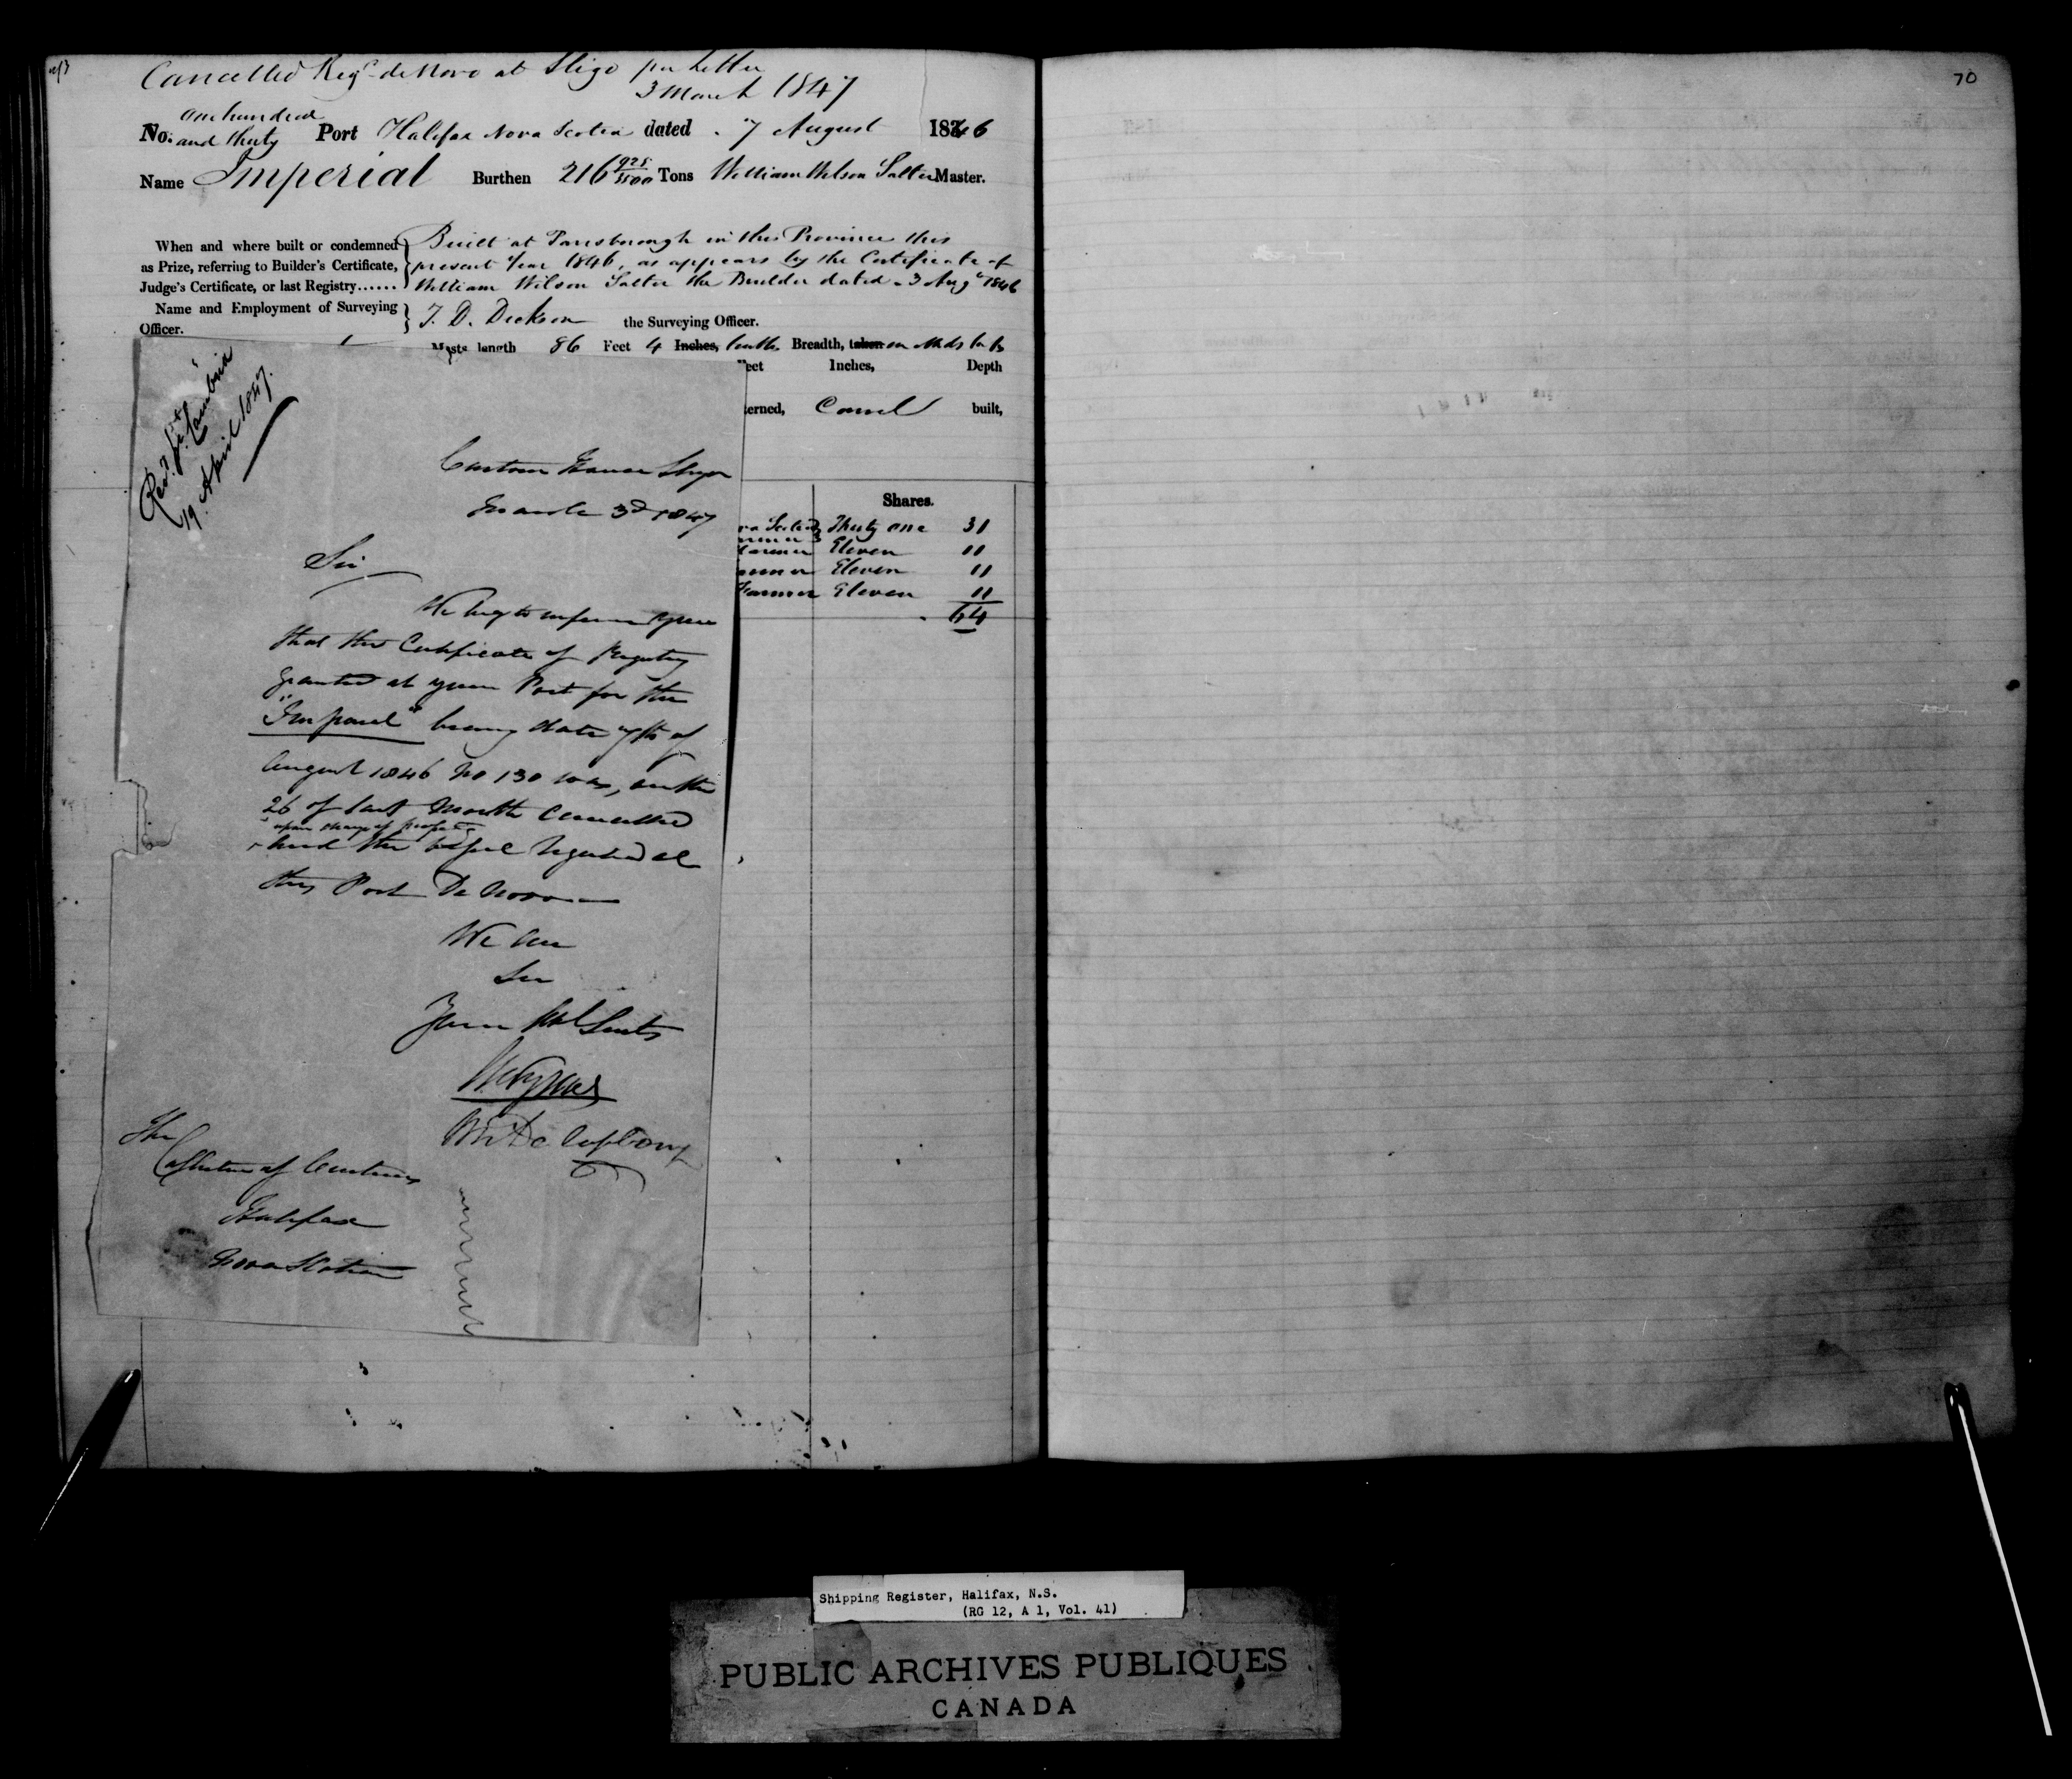 Cancelled Regd. de Novo at Sligo per Letter
3 March 1847
No. one hundred and thirty Port Halifax Nova Scotia dated 7 August 1846
Name Imperial Burthen 216 925/3500 Tons William Wilson Salter Master.
When and where built or condemned as Prize, referring to Builder's Certificate, Judge's Certificate, or last Registry......
Built at Parrsborough in this Province this
present Year 1846, as appears by the Certificate of
William Wilson Salter the Builder dated 3 Augt 1846
Name and Employment of Surveying Officer. T. D. Dickson the Surveying Officer.
length 86 Feet 4 Inches, tenths Breadth, taken
eet Inches, Depth
erned, Carvel built,
Shares.
Thirty one 31
Eleven 11
Eleven 11
Farmer Eleven 11
64
Recd. pr. Cambria
19 April 1847.
Custom House Sligo
March 3d 1847
Sir
We beg to inform you
that the Certificate of Registry
granted at your Port for the
"Imperial" bearing date 7th of
August 1846 No 130 was, on the
26 of last Month cancelled
upon change of property
and the Vessel registered at
this Port De Novo
We are
Sir
Your Obt Servts
The
Collector of Customs
Halifax
Nova Scotia
70
Shipping Register, Halifax, N.S.
(RG 12, A 1, Vol. 41)
PUBLIC ARCHIVES PUBLIQUES
CANADA